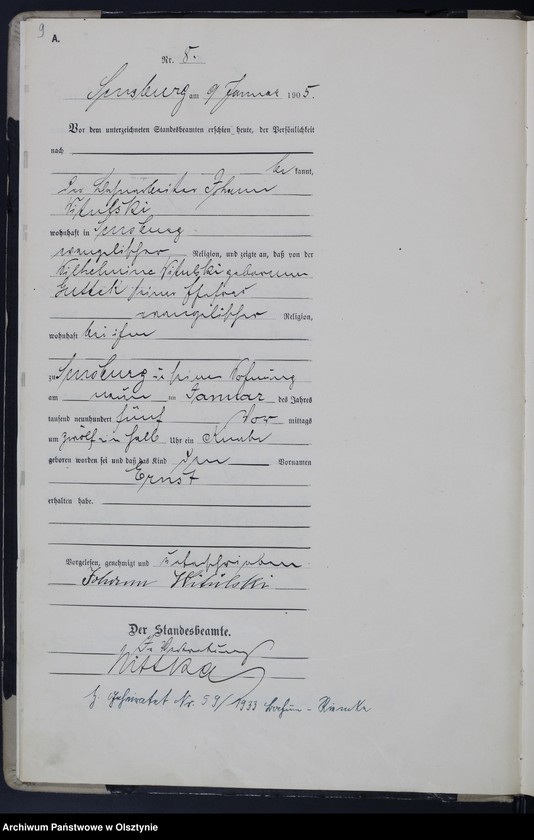 9
A.
Nr. 8.
Sensburg am 9 Januar 1905.
Vor dem unterzeichneten Standesbeamten erschien heute, der Persönlichkeit
nach
be kannt,
der Johann
Witulski
wohnhaft in Sensburg
evangelischer Religion, und zeigte an, daß von der
Wilhelmine Witulski geborenen
seiner Ehefrau
evangelischer Religion,
wohnhaft bei ihm
zu Sensburg in seiner Wohnung
am neun ten Januar des Jahres
tausend neunhundert fünf Vor mittags
um zwölf ein halb Uhr ein Knabe
geboren worden sei und daß das Kind den Vornamen
Ernst
erhalten habe.
Vorgelesen, genehmigt und unterschrieben
Johann Witulski
Der Standesbeamte.
In Vertretung
Nr. 59/1933 Bochum - Riemke
Archiwum Państwowe w Olsztynie